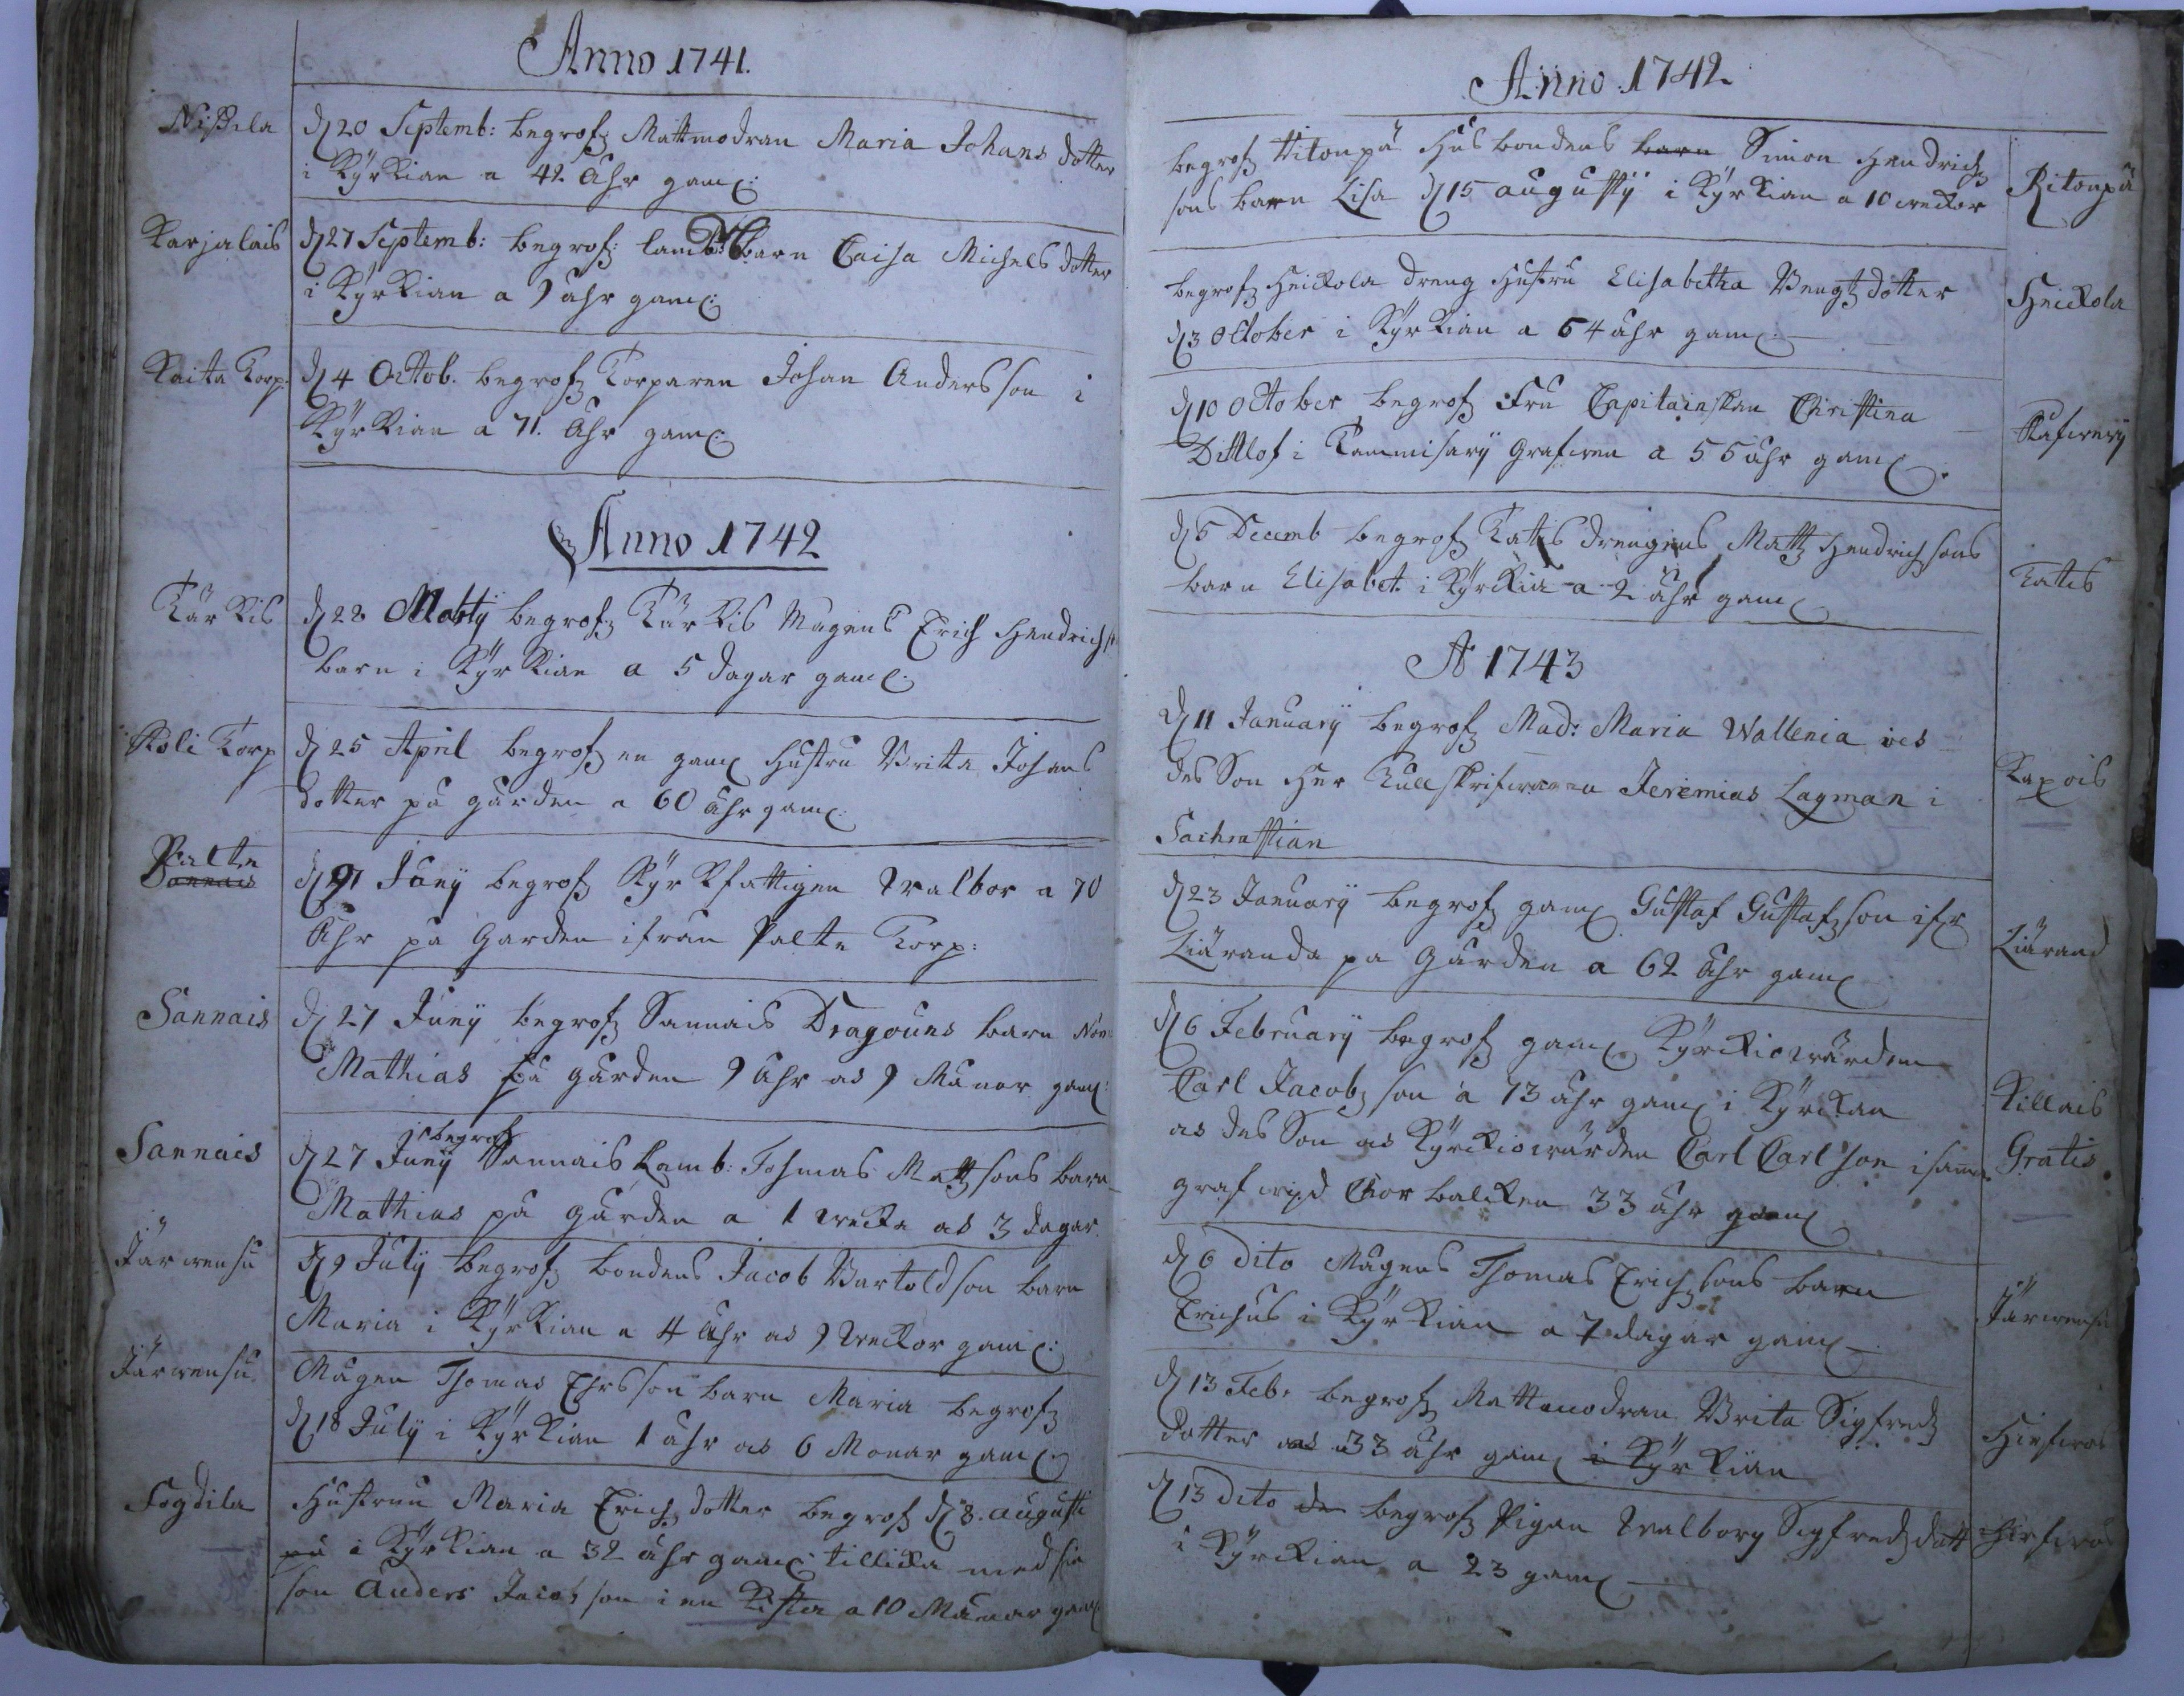 Anno 1741.
Nissila
d 20 Septemb: begrofz Mattmodran Maria Johans dotter
i Kyrkian a 42 åhr gaml:
Karjalais
d 27 Septemb: begrof: lamb: barn Caisa Michels dotter
i Kyrkian a 9 åhr gaml:
Kaita Torp:
d 4 Octob. begrofz Torparen Johan Andersson i
Kyrkian a 71. åhr gaml:
Anno 1742
Tärkis
d 28 Martÿ begrofz Tärkis Mågens Erich Hendrichs
barn i Kyrkian a 5 dagar gaml:
Koli Torp
d 25 April begrofz en gaml hustru Brita Johans
dotter på gården a 60 åhr gaml:
Palte
Sannais
d 21 Junÿ begrofz Kyrkfattigen Walbor a 70
åhr på Garden ifrån Palte Torp:
Sannais
d 27 Junÿ begrofz Sannais Dragouns barn
Mathias på gården 9 åhr as 9 Månar gaml
Sannais
begrofz
d 27 Junÿ Sannais Lamb: Tohmas Mattzsons barn
Mathias på gården a 1 wecka as 3 dagar.
Järwensu
d 9 Julÿ begrofz bondens Jacob Bartoldson barn
Maria i Kyrkian a 4 åhr as 9 weckor gaml:
Järwensu
Mågen Thomas Ehrsson barn Maria begrofz
d 18 Julÿ i Kyrkian 1 åhr as 6 Monar gaml:
Fogdila
Hustrun Maria Erichz dotter begrofz d 8. augusti
på i Kyrkian a 32 åhr gaml: tillika med sin
son Anders Jacobson i en Kista a 10 Månar gaml
Anno 1742
begrofz Ritonpä Husbondens barn Simon Hendrichz
sons barn Lisa d 15 augustÿ i Kyrkian a 10 weckor
Ritonpä
begrofz Heickola dreng Hustru Elisabetha Bengtz dotter
d 3 October i Kyrkian a 64 åhr gaml:
Heickola
d 10 October begrofz Fru Capitainskan Christina
Dittlof i Commisarÿ Grafwen a 55 åhr gaml:
d 5 Decemb begrofz Tatis drengens Mattz Hendrichsons
barn Elisabet. i Kyrkia a 2 åhr gaml
Tatis
A 1743
d 11 Januarÿ begrofz Mad: Maria Wallenia as
des Son Her Tullskrifwaren Jeremias Lagman i
Sachrastian
Kaxois
d 23 Januarÿ begrofz gaml Gustaf Gustafzson ifr
Liäranda på Gården a 62 åhr gaml
Liärand
d 6 Februarÿ begrofz gaml Kyrckiowärden
Carl Jacobzson a 73 åhr gaml i Kyrckan
as des Son as Kyrckiowärden Carl Carlson i samma
graf wid Chor balcken 33 åhr gaml
Killais
Gratis
d 6 dito Mågens Thomas Erichsons barn
Erichus i Kyrkian a 7 dagar gaml
Järwensu
d 13 Feb: begrofz Mattmodran Brita Sigfredz
dotter as 33 åhr gaml i Kyrkian
d 13 dito de begrofz Pigan Walborg Sigfredzdott
i Kyrckian a 23 gaml